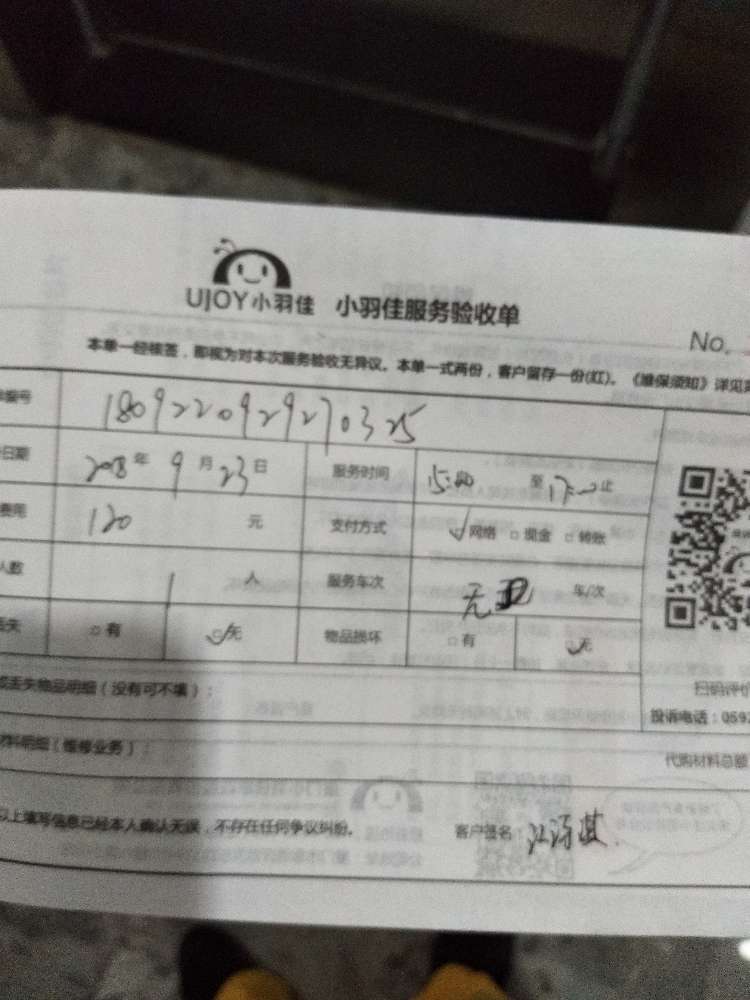 UJOY小羽佳 小羽佳服务验收单
No.
本单一经核签，即视为对本次服务验收无异议。本单一式两份，客户留存一份(红)。《维保须知》详见
编号 1809220929270325
日期 2018年9月23日 服务时间 至 止
费用 120 元 支付方式 网络 现金 转账
人数 1 人 服务车次 无 车/次
丢失 有 无 物品损坏 有 无
扫码评价
或丢失物品明细（没有可不填）：
投诉电话：059
材料明细（维修业务）：
代购材料总额
以上填写信息已经本人确认无误，不存在任何争议纠纷。 客户签名：